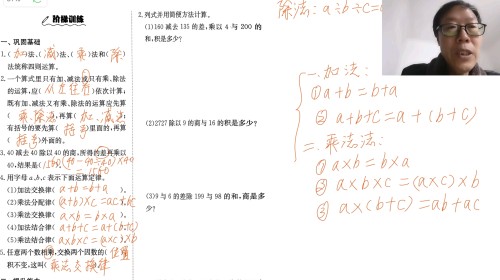 阶梯训练
一、巩固基础
1.(加)法、(减)法、(乘)法和(除)
法统称四则运算。
2.一个算式里只有加、减法或只有乘、除法
的运算,应(从左往右)依次计算;
既有加、减法又有乘、除法的运算应先算
(乘、除法),再算(加、减法);
有括号的要先算(括号)里面的,再算
(括号)外面的。
3.40减去40除以40的商,所得的差再乘以
40,结果是(
4.用字母a,b,c表示下面运算定律。
(1)加法交换律(a+b=b+a)。
(2)乘法分配律(
(3)乘法交换律(a×b=b×a)。
(4)加法结合律(a+b+c=a+(b+c))
(5)乘法结合律(a×b×c=(a×c)×b
5.任意两个数相乘,交换两个因数的(位置
积不变,这叫(乘法交换律
2.列式并用简便方法计算。
(1)160减去135的差,乘以4与200的
和,积是多少?
(2)2727除以9的商与16的积是多少?
(3)9与6的差除199与98的和,商是多
少?
除法:a÷b÷c=
一.加法:
①a+b=b+a
②a+b+c=a+(b+c)
二.乘法法:
①a×b=b×a
②a×b×c=(a×c)×b
③a×(b+c)=ab+ac